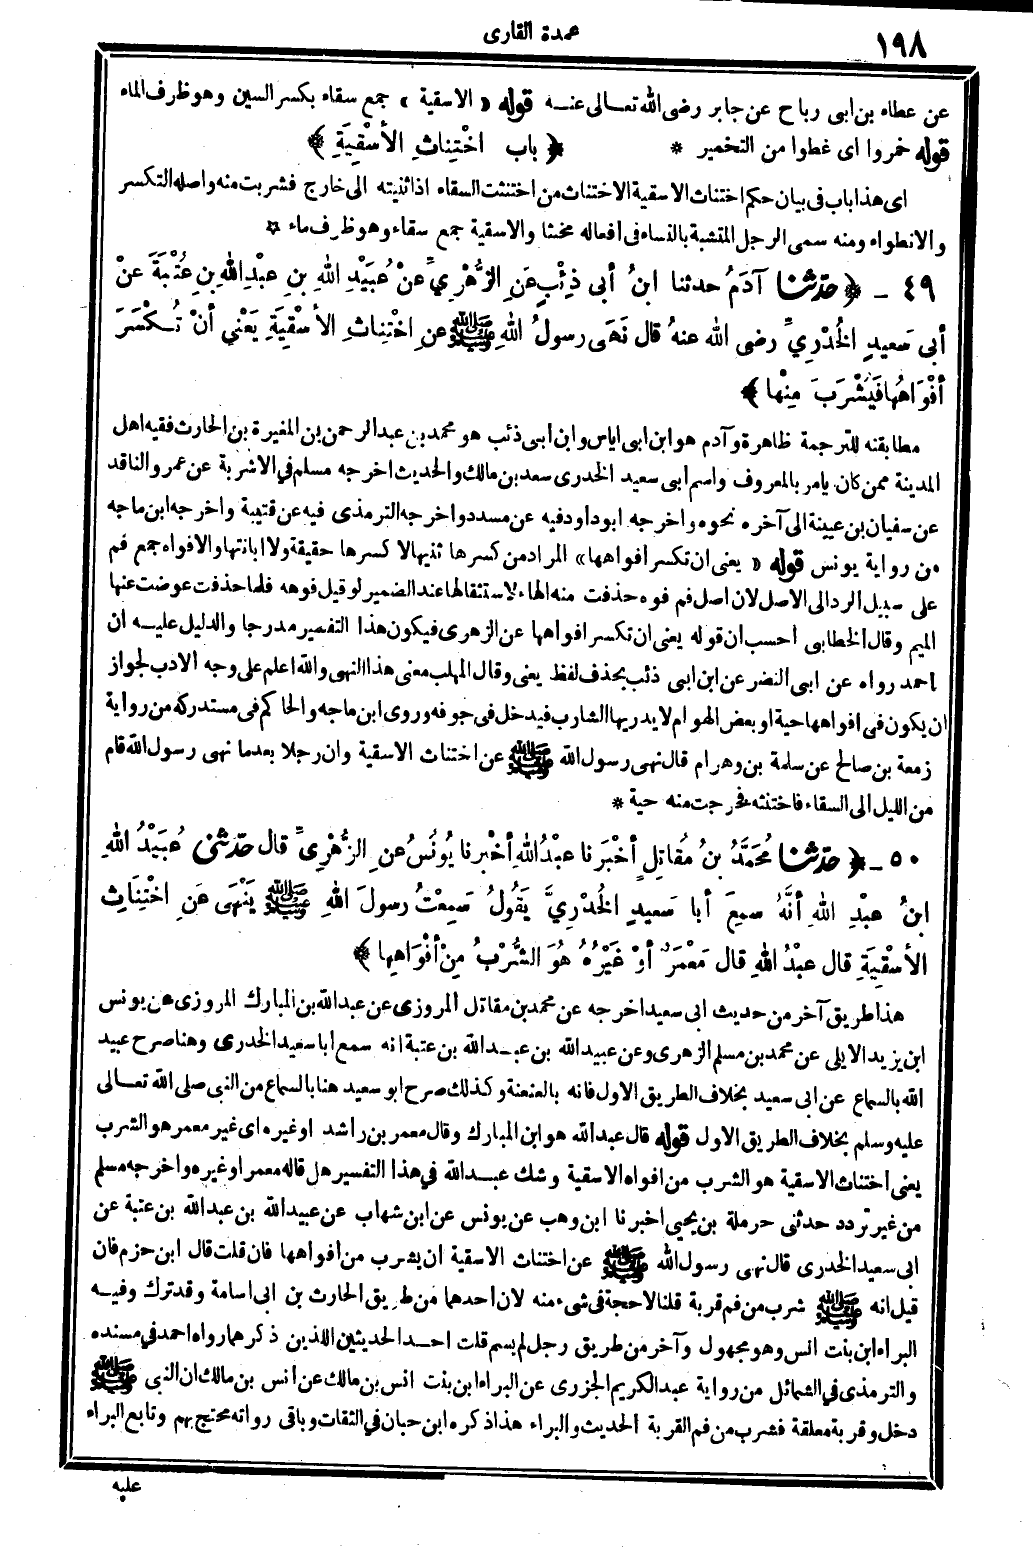 ١٩٨
عمدة القارى
عن عطاء بن ابى رباح عن جابر رضى الله تعالى عنه قوله « الاسقية » جمع سقاء بكسر السين وهو ظرف الماء
قوله خمروا اى غطوا من التخمير * ﴿ باب اخْتِناثِ الأسْقِيَةِ ﴾
اى هذا باب فى بيان حكم اختناث الاسقية الاختناث من اختنثت السقاء اذا ثنيته الى خارج فشربت منه واصله التكسر
والانطواء ومنه سمى الرجل المتشبة بالنساء فى افعاله مخنثا والاسقية جمع سقاء وهو ظرف ماء *
٤٩ - ﴿ حدّثنا آدَمُ حدثنا ابنُ أبى ذِئْبٍ عَنِ الزُّهْرِيِّ عنْ عُبَيْدِ اللهِ بنِ عبْدِ اللهِ بنِ عُتْبَةَ عنْ
أبى سَعيدٍ الخُدْرِيِّ رضى الله عنهُ قال نَهَى رسولُ اللهِ ﷺ عنِ اخْتِناثِ الأسْقِيَةِ يَعْنِي أنْ تُكْسَرَ
أفْوَاهُها فَيُشْرَبَ مِنْها ﴾
مطابقته للترجمة ظاهرة وآدم هو ابن ابى اياس وابن ابى ذئب هو محمد بن عبد الرحمن بن المغيرة بن الحارث فقيه اهل
المدينة ممن كان يامر بالمعروف واسم ابى سعيد الخدرى سعد بن مالك والحديث اخرجه مسلم في الاشربة عن عمرو الناقد
عن سفيان بن عيينة الى آخره نحوه واخرجه ابو داود فيه عن مسدد واخرجه الترمذى فيه عن قتيبة واخرجه ابن ماجه
من رواية يونس قوله « يعنى ان تكسر افواهها » المراد من كسرها ثنيها لا كسرها حقيقة ولا ابانتها والافواه جمع فم
على سبيل الرد الى الاصل لان اصل فم فوه حذفت منه الهاء لاستثقالها عند الضمير لو قيل فوهه فلما حذفت عوضت عنها
الميم وقال الخطابى احسب ان قوله يعنى ان تكسر افواهها عن الزهرى فيكون هذا التفسير مدرجا والدليل عليه ان
احمد رواه عن ابى النضر عن ابن ابى ذئب بحذف لفظ يعنى وقال المهلب معنى هذا النهى والله اعلم على وجه الادب لجواز
ان يكون فى افواهها حية او بعض الهوام لا يدريها الشارب فيدخل فى جوفه وروى ابن ماجه والحاكم فى مستدركه من رواية
زمعة بن صالح عن سلمة بن وهرام قال نهى رسول الله ﷺ عن اختناث الاسقية وان رجلا بعدما نهى رسول الله قام
من الليل الى السقاء فاختنثه فخرجت منه حية *
٥٠ - ﴿ حدّثنا مُحَمَّدُ بنُ مُقاتِلٍ أخْبَرنا عبْدُ اللهِ أخْبرنا يُونُسُ عنِ الزُّهْرِيِّ قال حدّثنى عُبَيْدُ اللهِ
ابنُ عبْدِ اللهِ أنَّهُ سمِعَ أبا سَعيدٍ الخُدْرِيَّ يَقُولُ سَمِعْتُ رسولَ اللهِ ﷺ يَنْهَى عَنِ اخْتِناثِ
الأسْقِيَةِ قال عبْدُ اللهِ قال مَعْمَرٌ أوْ غَيْرُهُ هُوَ الشُّرْبُ مِنْ أفْوَاهِها ﴾
هذا طريق آخر من حديث ابى سعيد اخرجه عن محمد بن مقاتل المروزى عن عبد الله بن المبارك المروزى عن يونس
ابن يزيد الايلى عن محمد بن مسلم الزهرى وعن عبيد الله بن عبد الله بن عتبة انه سمع ابا سعيد الخدرى وهنا صرح عبيد
الله بالسماع عن ابى سعيد بخلاف الطريق الاول فانه بالعنعنة وكذلك صرح ابو سعيد هنا بالسماع من النبى صلى الله تعالى
عليه وسلم بخلاف الطريق الاول قوله قال عبد الله هو ابن المبارك وقال معمر بن راشد او غيره اى غير معمر هو الشرب
يعنى اختناث الاسقية هو الشرب من افواه الاسقية وشك عبد الله في هذا التفسير هل قاله معمر او غيره واخرجه مسلم
من غير تردد حدثنى حرملة بن يحيى اخبرنا ابن وهب عن يونس عن ابن شهاب عن عبيد الله بن عبد الله بن عتبة عن
ابى سعيد الخدرى قال نهى رسول الله ﷺ عن اختناث الاسقية ان يشرب من افواهها فان قلت قال ابن حزم فان
قيل انه ﷺ شرب من فم قربة قلنا لا حجة فى شىء منه لان احدهما من طريق الحارث بن ابى اسامة وقد ترك وفيه
البراء ابن بنت انس وهو مجهول وآخر من طريق رجل لم يسم قلت احد الحديثين اللذين ذكرهما رواه احمد في مسنده
والترمذى في الشمائل من رواية عبد الكريم الجزرى عن البراء ابن بنت انس بن مالك عن أنس بن مالك ان النبى ﷺ
دخل وقربة معلقة فشرب من فم القربة الحديث والبراء هذا ذكره ابن حبان في الثقات وباقى رواته محتج بهم وتابع البراء
عليه